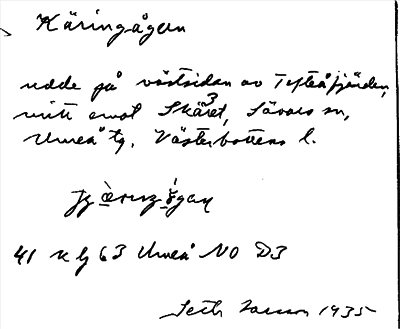 Käringågern
udde på västsidan av Tefteåfjärden,
mitt emot Skäret, Sävars sn,
Umeå tg. Västerbottens l.
41 x g 63 Umeå NO D3
Seth 1935